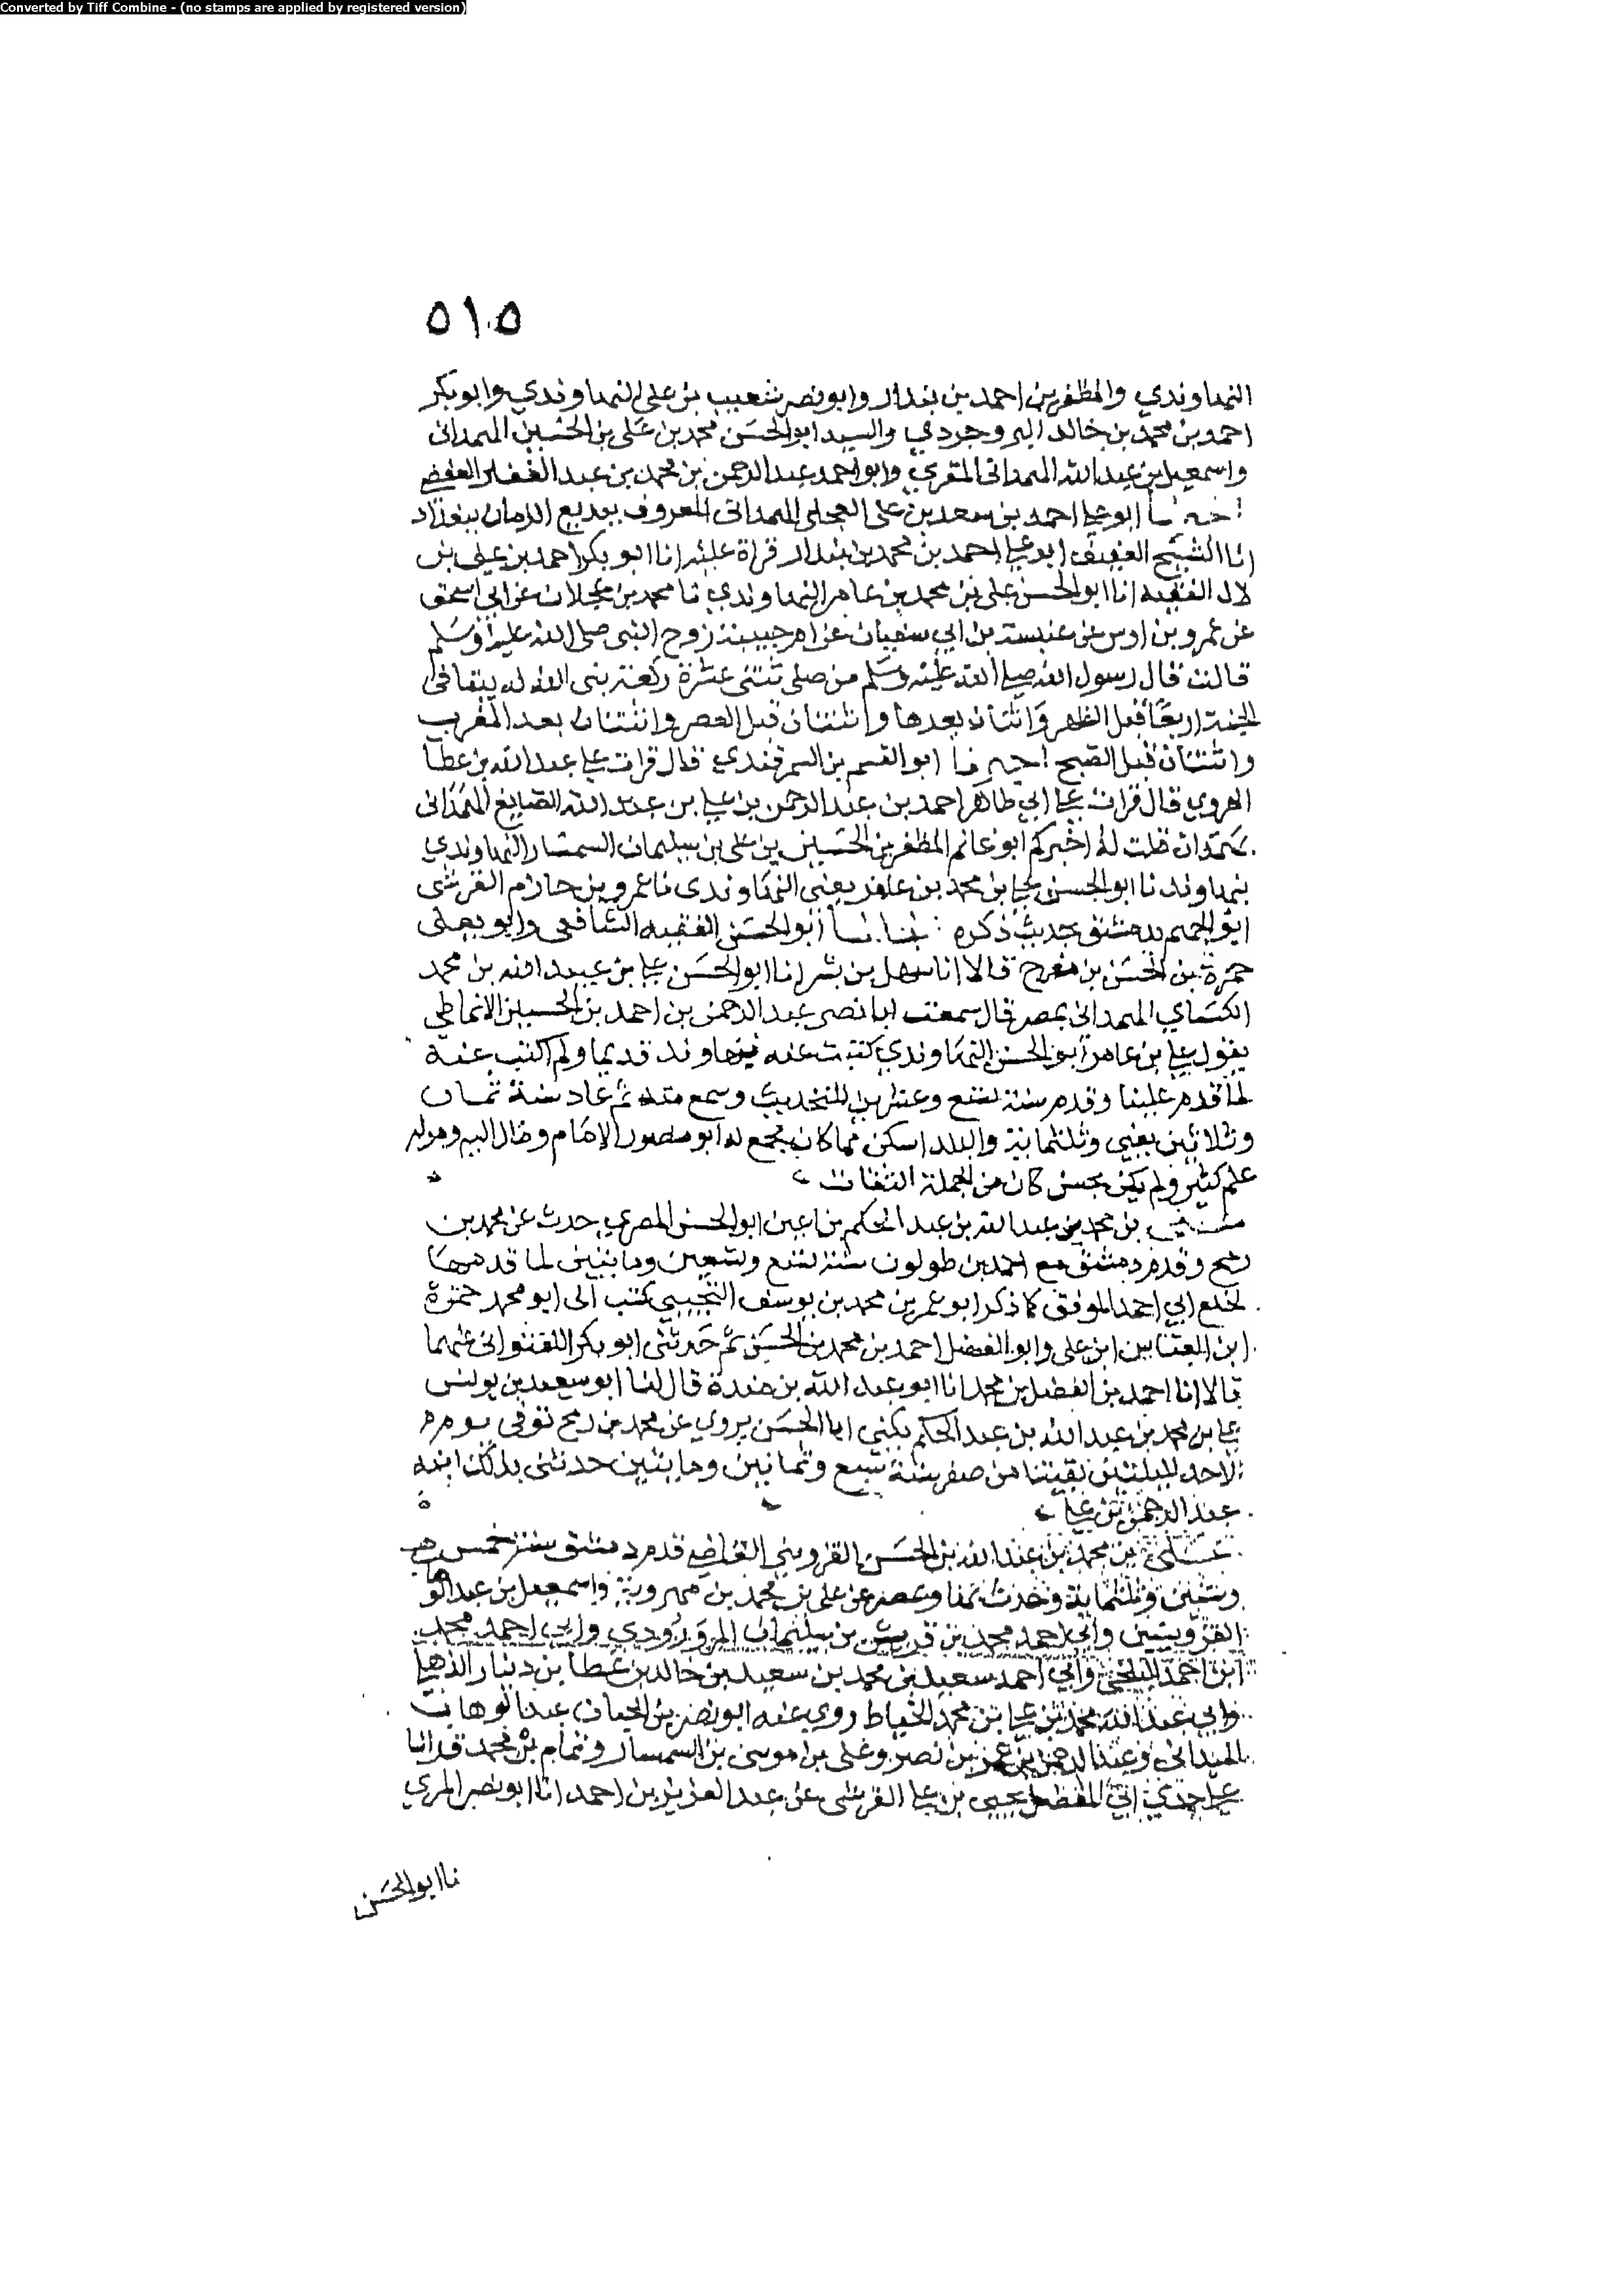 Converted by Tiff Combine - (no stamps are applied by registered version)
٥١٥
النهاوندي والمظفر بن احمد بن بندار وابو نصر شعيب بن على النهاوندي وابو بكر
احمد بن محمد بن خالد البروجردي والسيد ابو الحسن محمد بن على بن الحسين الهمدانى
واسمعيل بن عبد الله الهمدانى المقري وابو احمد عبد الرحمن بن محمد بن عبد الغفار
ابو علي احمد بن سعد بن على العجلى الهمدانى المعروف ببديع الزمان ببغداد
انا الشيخ العفيف ابو علي احمد بن محمد بن بندار قراة عليه انا ابو بكر احمد بن على بن
لال الفقيه انا ابو الحسن على بن محمد بن عامر النهاوندي نا محمد بن عجلان عن ابي اسحق
عن عمرو بن اوس عن عنبسة بن ابي سفيان عن ام حبيبة زوج النبى صلى الله عليه وسلم
قالت قال رسول الله صلى الله عليه وسلم من صلى ثنتى عشرة ركعة بنى الله له بيتا فى
الجنة اربعا قبل الظهر واثنتان بعدها واثنتان قبل العصر واثنتان بعد المغرب
واثنتان قبل الصبح اخبرنا ابو القسم بن السمرقندي قال قرات على عبد الله بن عطا
الهروي قال قرات على ابي طاهر احمد بن عبد الرحمن بن علي بن عبد الله الصايغ الهمدانى
بهمدان قلت له اخبركم ابو غانم المظفر بن الحسين بن على بن سليمان السمسار النهاوندي
بنهاوند نا ابو الحسن علي بن محمد بن عامر يعنى النهاوندى نا عمرو بن حازم القرشى
ابو الجهم بدمشق بحديث ذكره انبانا ابو الحسن الفقيه الشافعى وابو يعلى
حمزة بن الحسن بن مفرج قالا انا سهل بن بشر انا ابو الحسن علي بن عبيد الله بن محمد
الكسائي الهمدانى بمصر قال سمعت ابا نصر عبد الرحمن بن احمد بن الحسين الانماطي
يقول علي بن عامر ابو الحسن النهاوندي كتبت عنه بنهاوند قديما ولم اكتب عنه
لما قدم علينا وقدم سنة تسع وعشرين للتحديث وسمع منه ثم عاد سنة ثمان
وثلاثين يعنى وثلثماية والبلد اسكن مما كان فجمع له ابو منصور الامام ومال اليه
علم كثير ولم يكن بحسن كان من الجملة الثقات
بن محمد بن عبد الله بن عبد الحكم بن اعين ابو الحسن المصري حدث عن محمد بن
رمح وقدم دمشق مع احمد بن طولون سنة تسع وستين ومايتين لما قدمها
لخلع ابي احمد الموفق كما ذكر ابو عمر بن محمد بن يوسف التجيبي كتب الى ابو محمد حمزة
ابن العباس ابن على وابو الفضل احمد بن محمد بن الحسن ثم حدثنى ابو بكر اللفتوانى عنهما
قالا انا احمد بن الفضل بن محمد انا ابو عبد الله بن مندة قال لنا ابو سعيد بن يونس
علي بن محمد بن عبد الله بن عبد الحكم يكنى ابا الحسن يروي عن محمد بن رمح توفى يوم
الاحد لليلتين بقيتا من صفر سنة سبع وثمانين ومايتين حدثنى بذلك ابنه
عبد الرحمن بن علي
على بن محمد بن عبد الله بن الحسن القزويني القاضي قدم دمشق سنة خمس
وستين وثلثماية وحدث بها وبمصر عن على بن محمد بن مهروية واسمعيل بن عبد الوهاب
القزوينيين وابي احمد محمد بن قريش بن سليمان المروروذي وابي احمد محمد
ابن احمد البلخى وابي احمد سعيد بن محمد بن سعيد بن خالد بن عطا بن دينار
وابي عبد الله محمد بن علي بن محمد الخياط روي عنه ابو نصر بن الجبان عبد الوهاب
الميدانى وعبد الرحمن بن عمر بن نصر وعلى بن موسى بن السمسار وتمام بن محمد قرانا
على جدي ابي المفضل يحيى بن علي القرشى عن عبد العزيز بن احمد انا ابو نصر المري
نا ابو الحسن